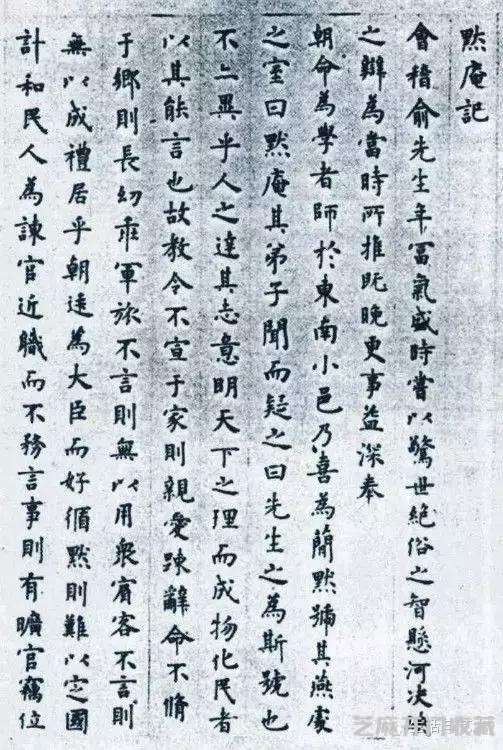 默庵記
會稽俞先生年富氣盛時嘗以驚世絕俗之智懸河决
之辯為當時所推既晚更事益深奉
朝命為學者師於東南小邑乃喜為簡默號其燕處
之室曰默庵其弟子聞而疑之曰先生之為斯號也
不亦異乎人之達其志意明天下之理而成物化民者
以其能言也故教令不宣于家則親愛踈辭命不脩
于鄉則長幼乖軍旅不言則無以用衆賓客不言則
無以成禮居乎朝廷為大臣而好循默則難以定國
計和民人為諫官近職而不務言事則有曠官竊位